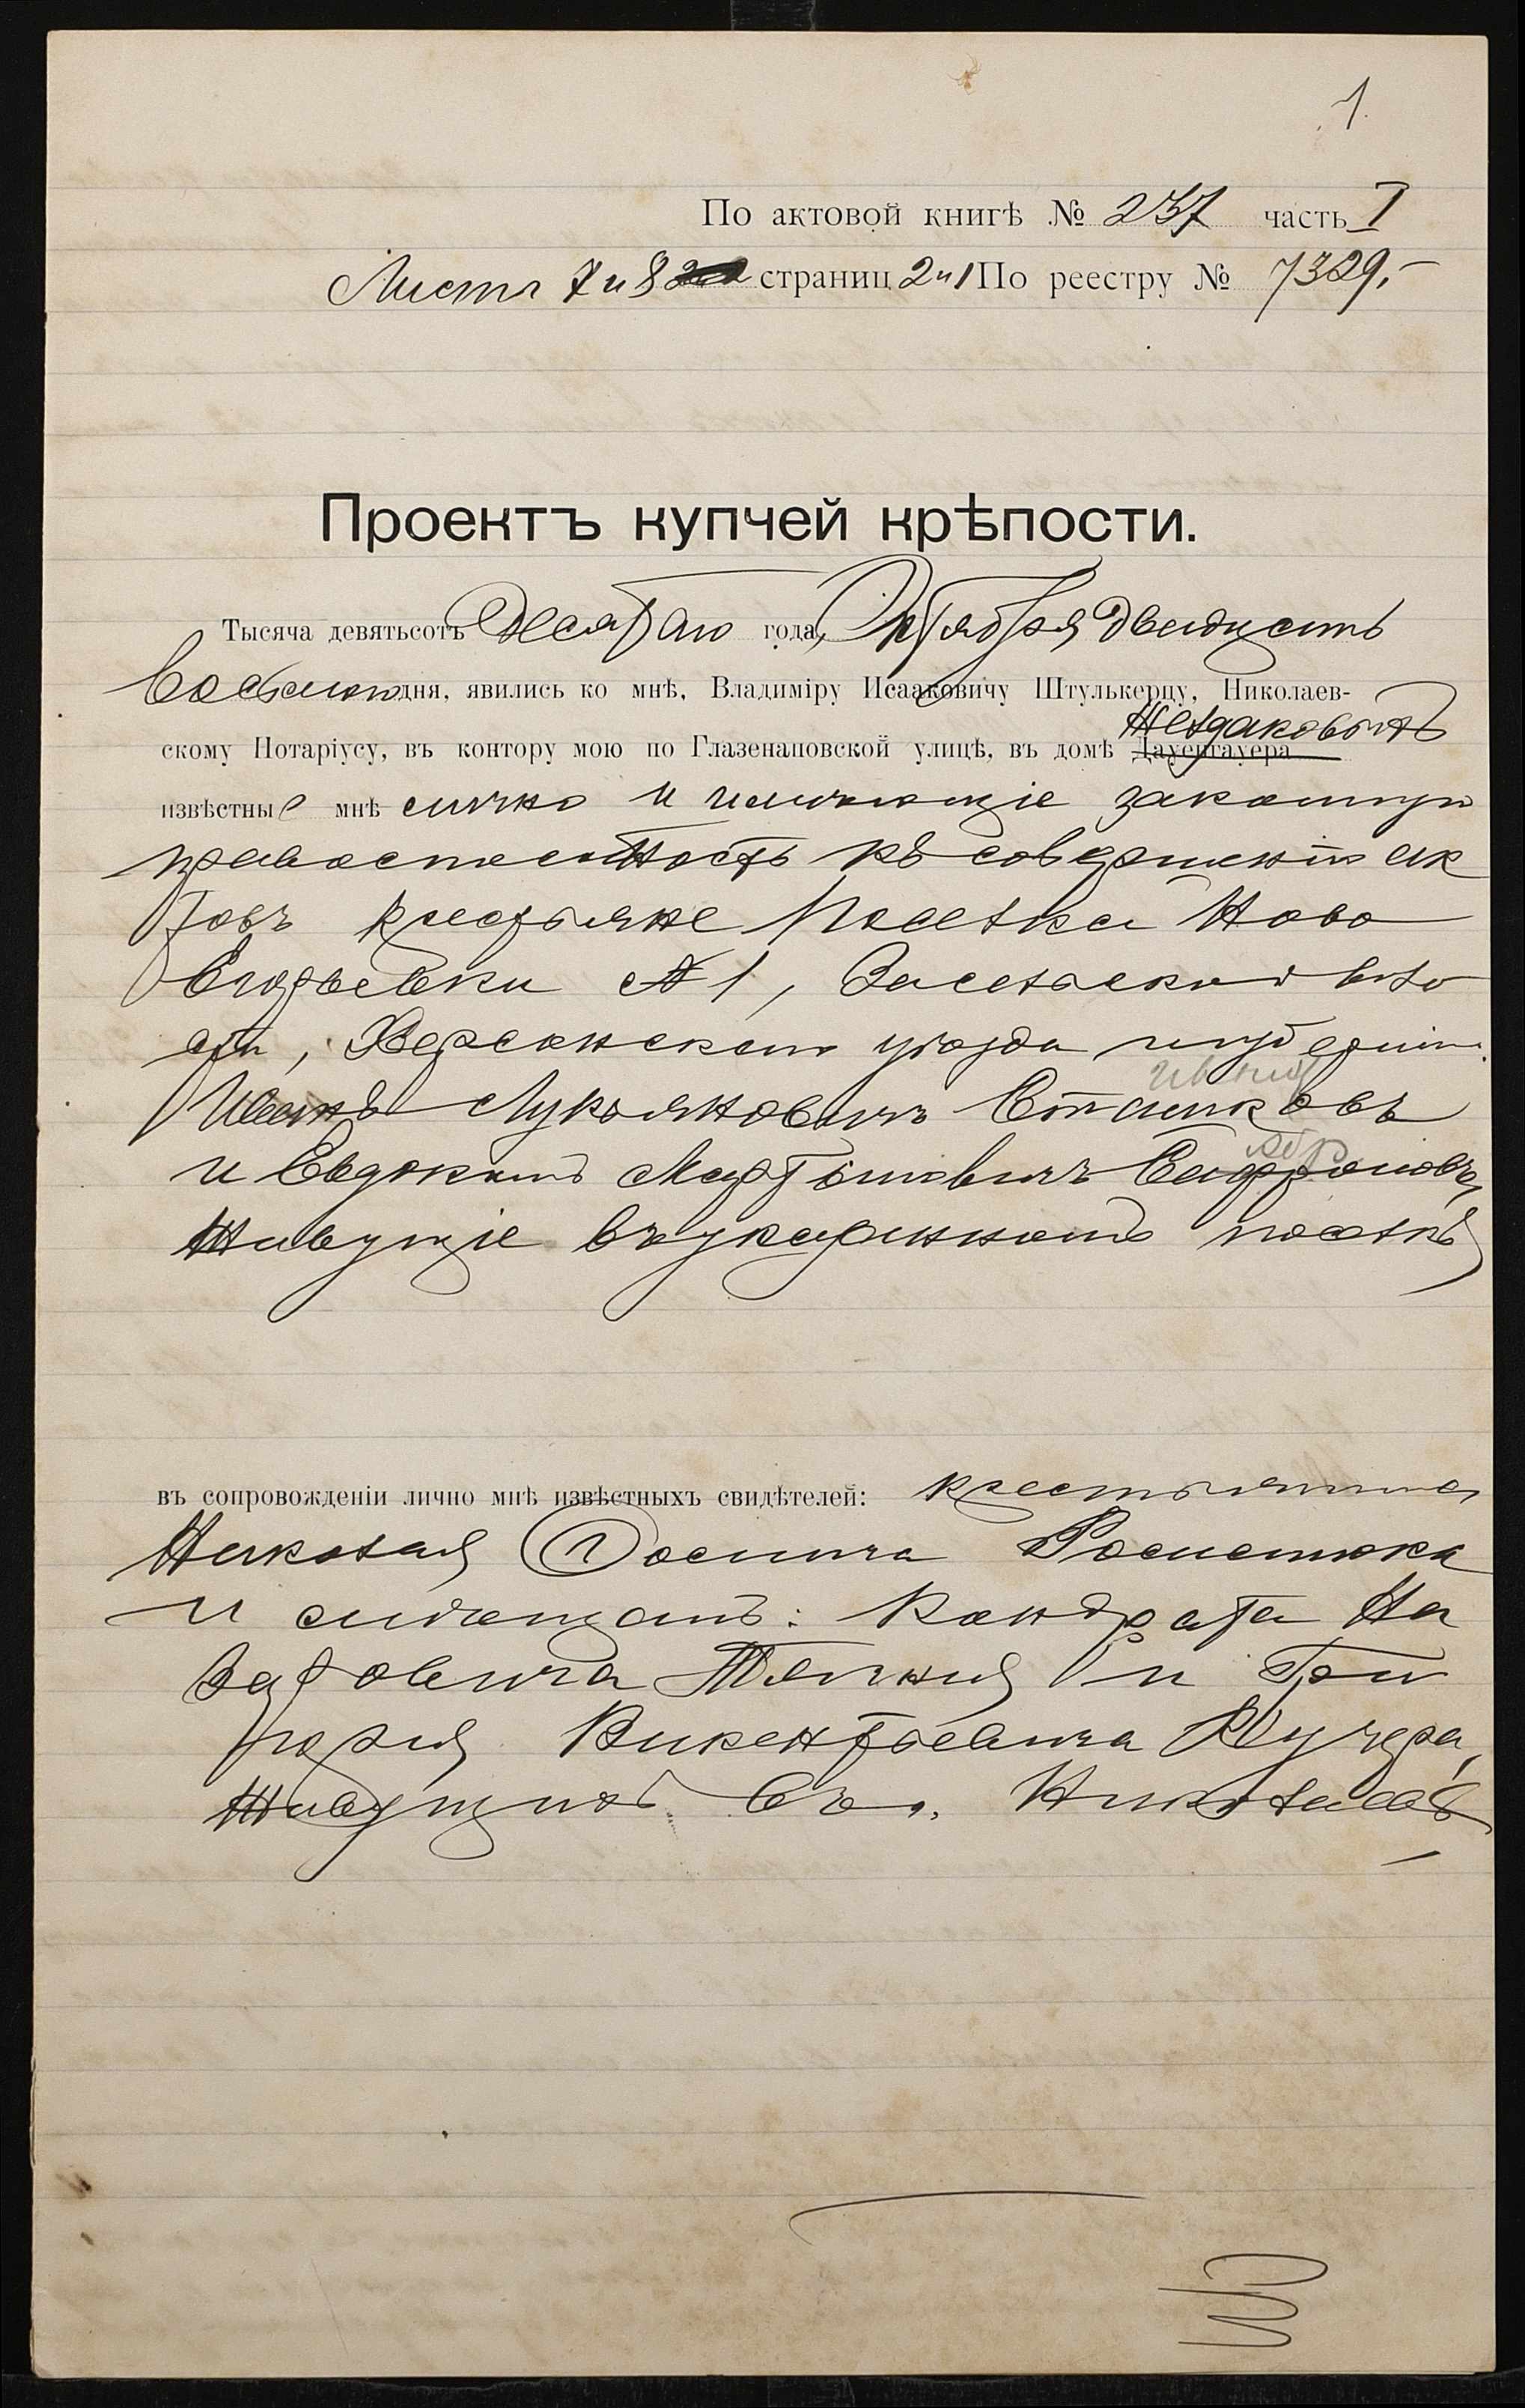 1.
По актовой книгѣ № 237 часть I
Листъ 7 и 8 страниц 2 и 1 По реестру № 7329.
Проектъ купчей крѣпости.
Тысяча девятьсотъ десятаго года, Октября двадцать
восьмого дня, явились ко мнѣ, Владиміру Исааковичу Штулькерцу, Николаев-
скому Нотаріусу, въ контору мою по Глазенаповской улицѣ, въ домѣ Дахенгауера
извѣстные мнѣ лично и имѣющіе законную
правоспособность къ совершенію ак
товъ крестьяне поселка Ново
Егорьевки № 1, Засельской воло
сти, Херсонскаго уѣзда и губерніи
Иванъ Лукьяновичъ
и Евдокимъ Мартыновичъ
живущіе въ указанномъ поселкѣ
въ сопровожденіи лично мнѣ извѣстныхъ свидѣтелей: крестьянина
Николая
и мѣщанъ: Кондрата На
заровича и Гри
горія Викентьевича Кучера,
живущихъ въ г. Николаевѣ